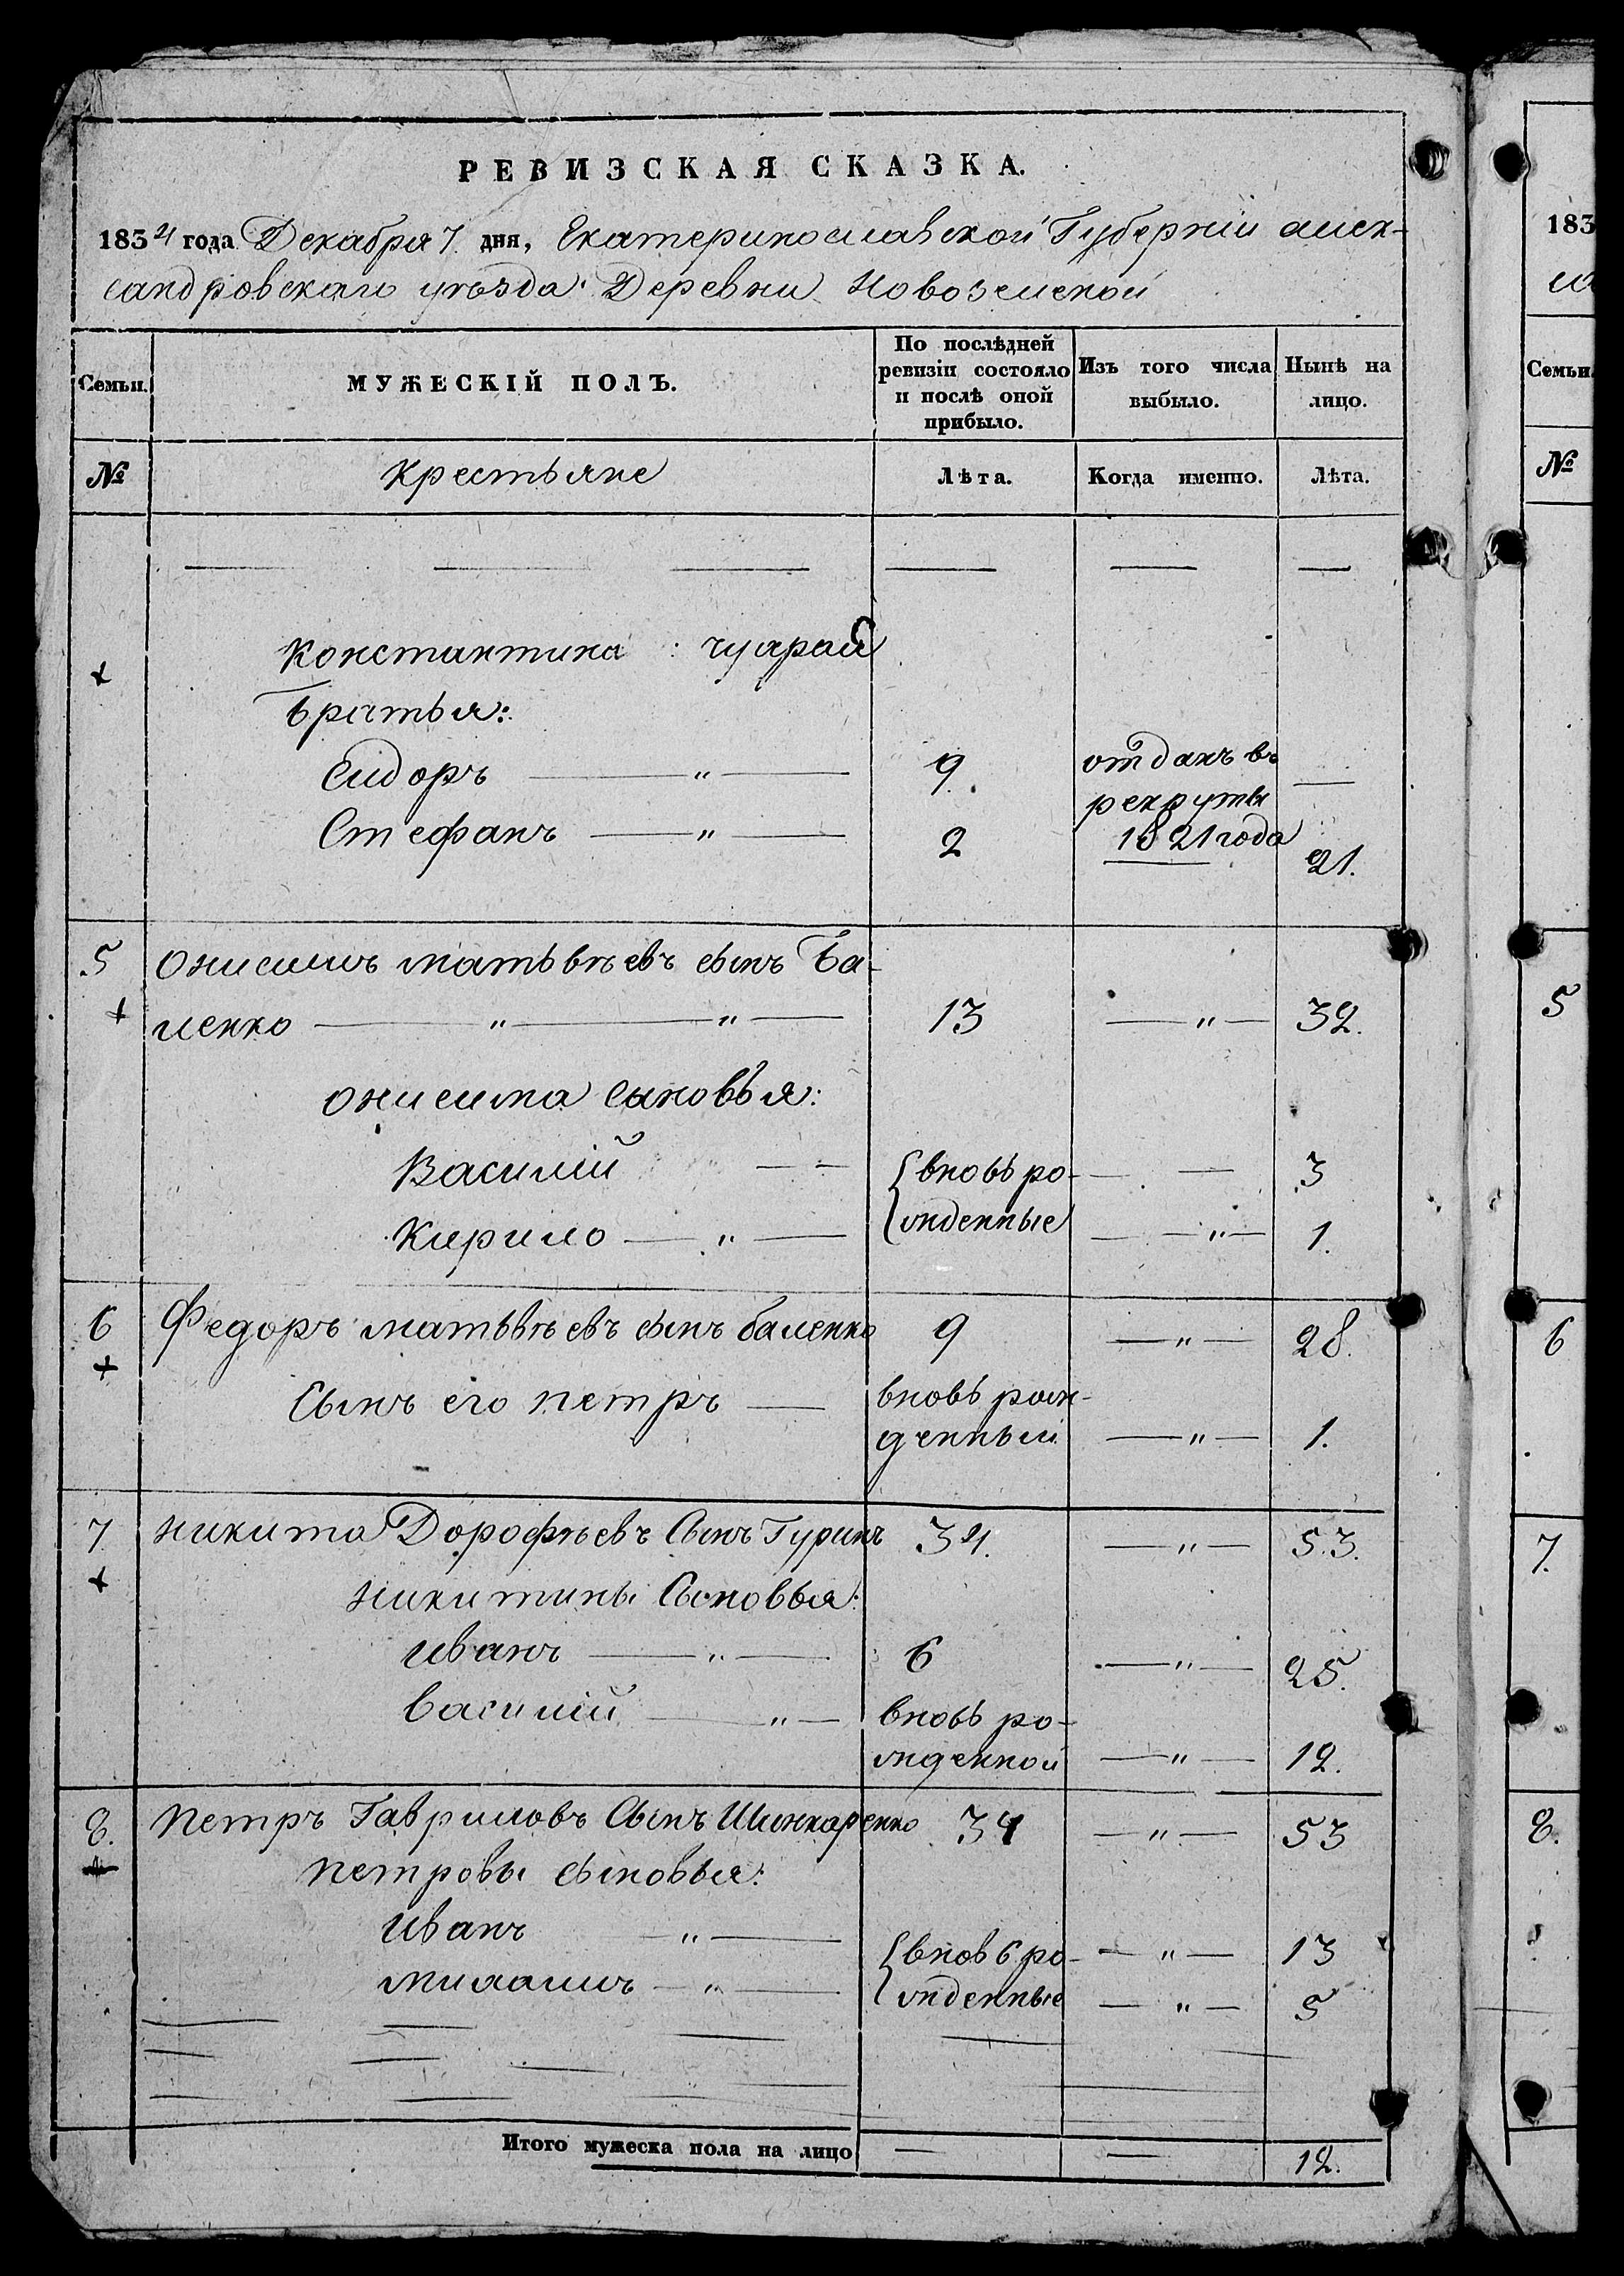 РЕВИЗСКАЯ СКАЗКА.
1834 года Декабря 7 дня, Екатеринославской Губерніи алек-
сандровскаго уѣзда Деревни Новоземской
Семьи.
МУЖЕСКІЙ ПОЛЪ.
По послѣдней ревизіи состояло и послѣ оной прибыло.
Изъ того числа выбыло.
Нынѣ на лицо.
№ Крестьяне Лѣта. Когда именно. Лѣта.
Константина
Братья:
Сидоръ — " — 9 отданъ въ —
рекруты
1821 года
Стефанъ — " — 2 21.
5 Онисимъ матьвѣевъ сынъ Ба-
ленко — " — " — 13 — " — 32.
онисима сыновья:
Василій — — вновь ро- — — 3
Кирило — " — жденные — " — 1.
6 Федоръ матьвѣевъ сынъ баленко 9 — " — 28.
Сынъ его петръ — вновь рож-
денный — " — 1.
7 никита Дорофѣевъ Сынъ Гуринъ 34. — " — 53.
никитины Сыновья:
иванъ — " — 6 — " — 25.
василій — " — вновь ро-
жденной — " — 12.
8. петръ Гавриловъ Сынъ Шинкаренко 34 — " — 53
петровы сыновья:
иванъ — " — вновь ро- — " — 13
— " — жденные — " — 5
Итого мужеска пола на лицо — — 12.
183
Семьи
№
5
6
7.
8.